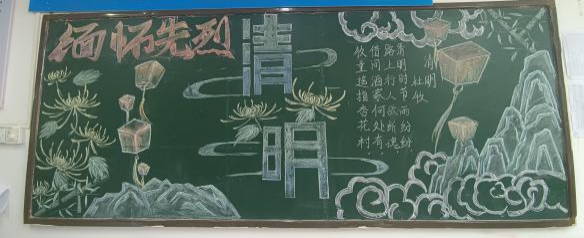 缅怀先烈
清明
清明
杜牧
清明时节雨纷纷
路上行人欲断魂
借问酒家何处有
牧童遥指杏花村